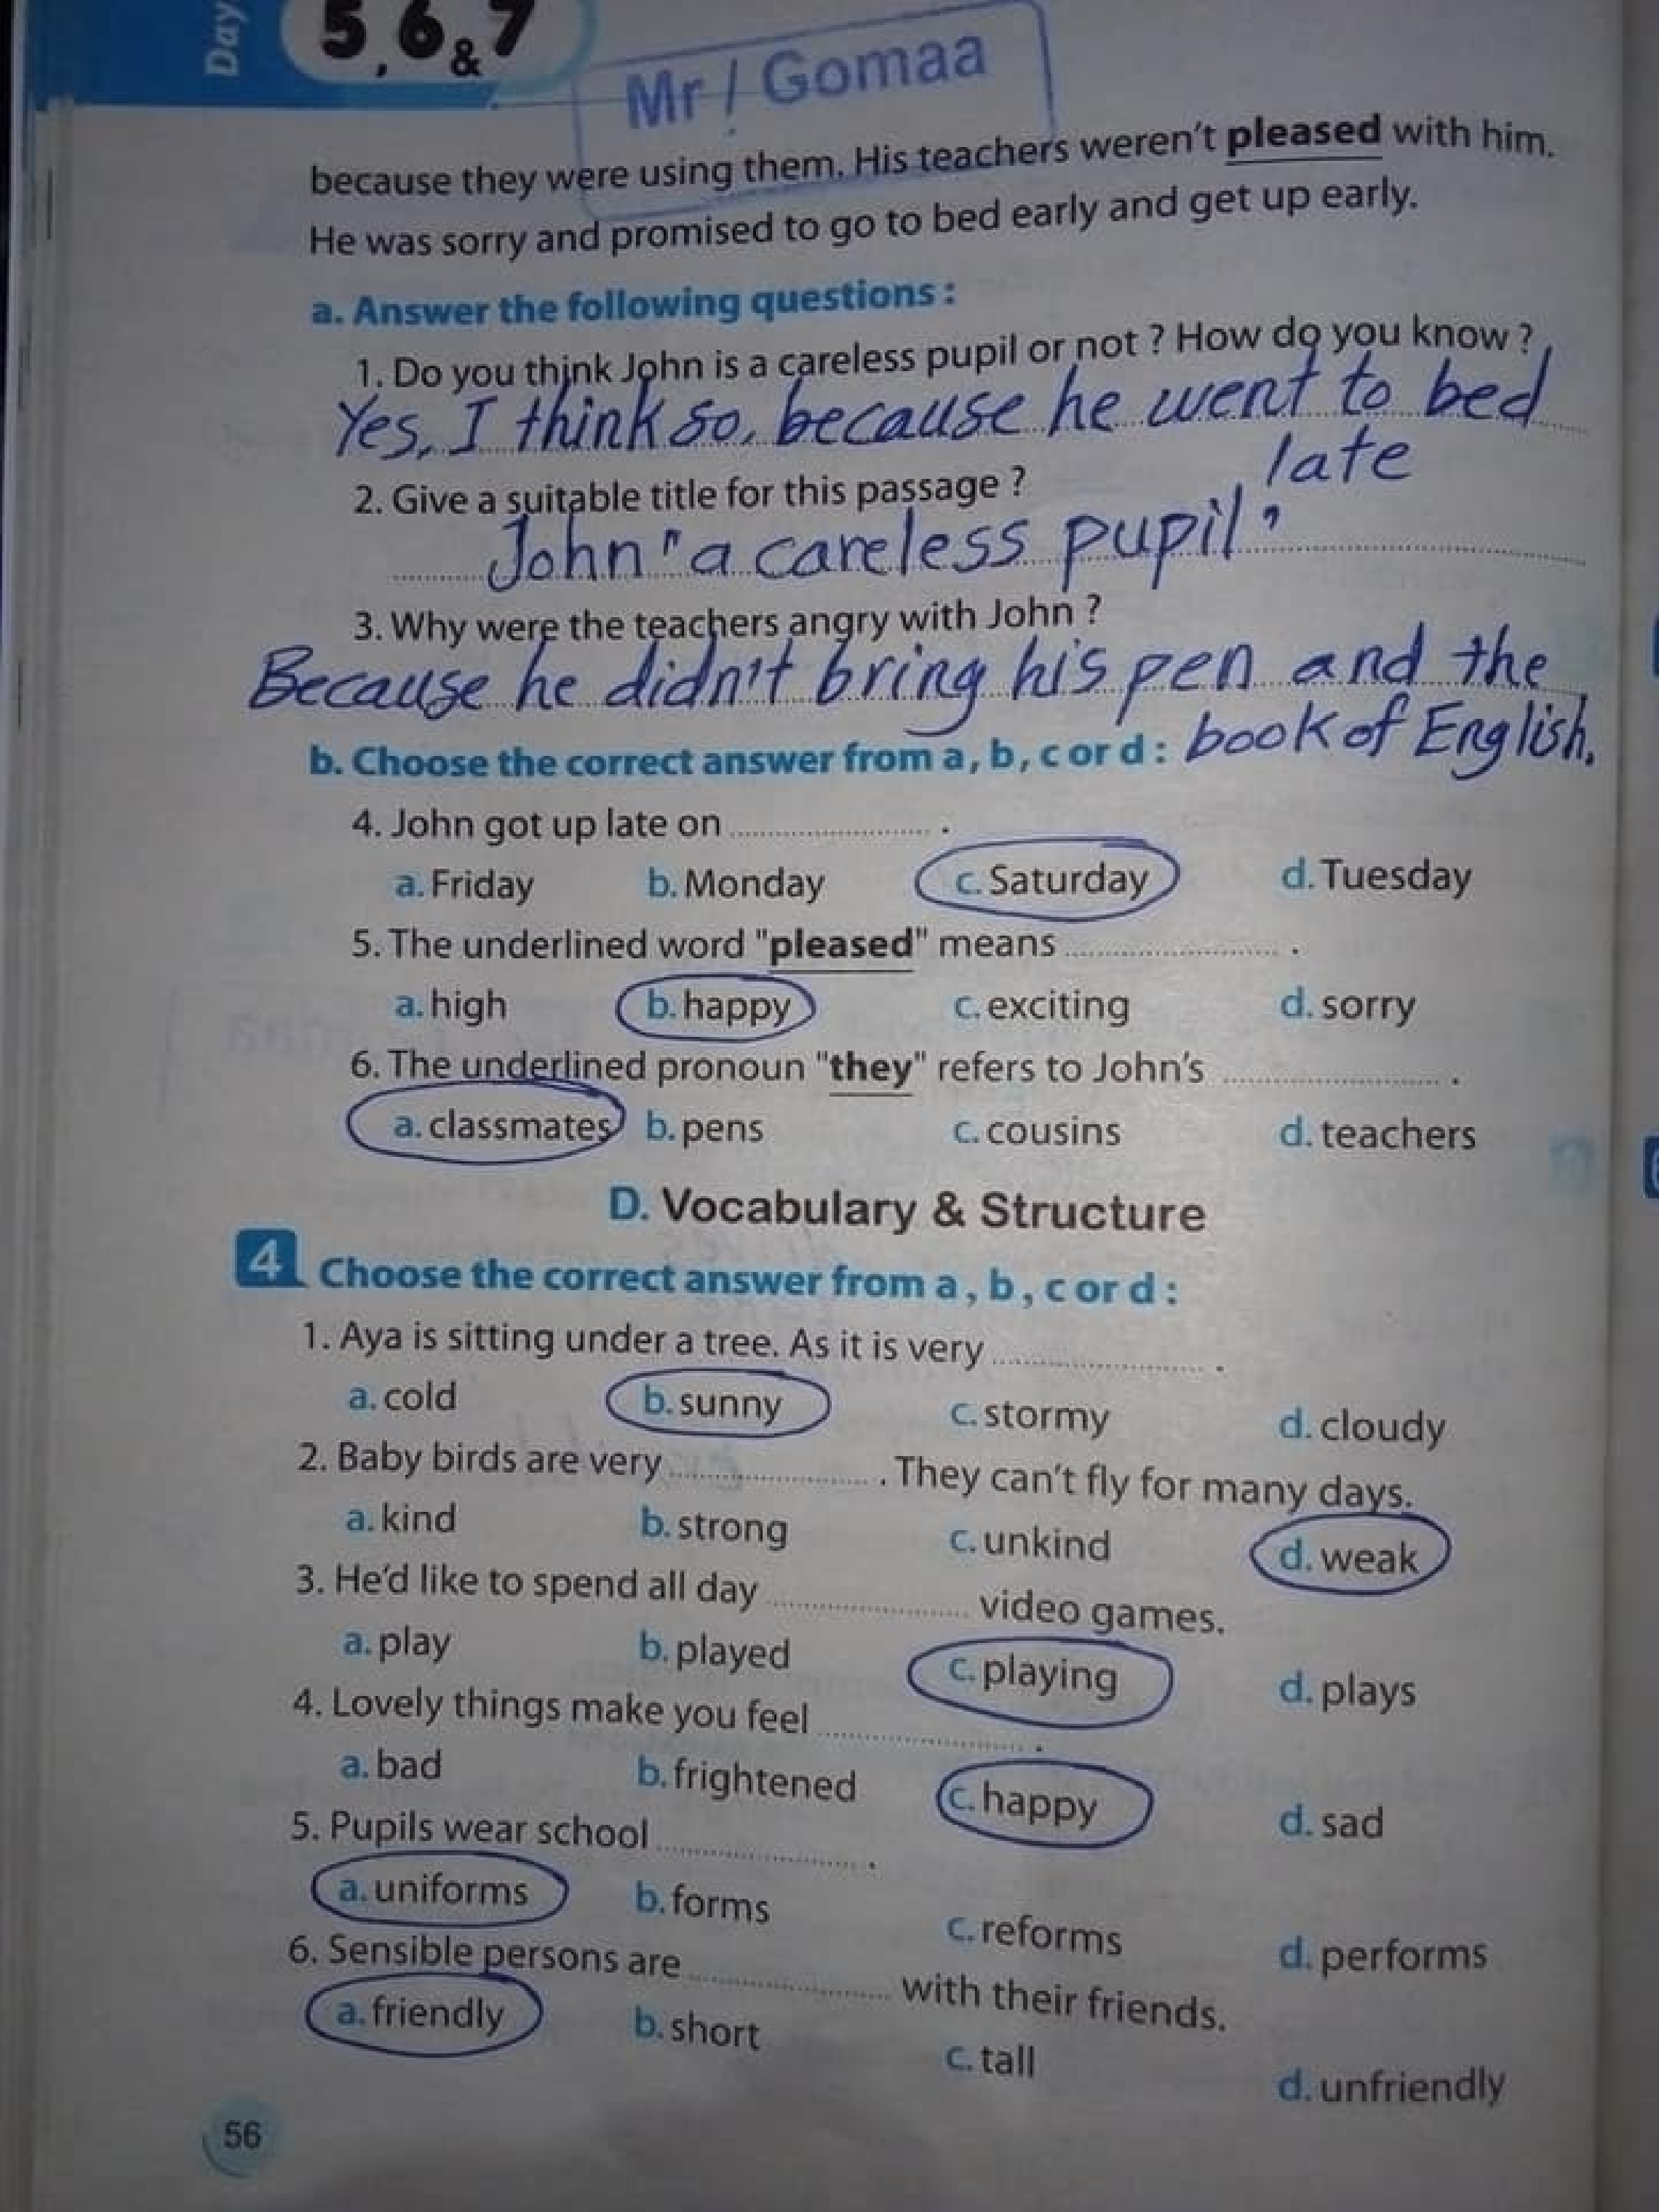 Day 5, 6 & 7
Mr / Gomaa
because they were using them. His teachers weren't pleased with him.
He was sorry and promised to go to bed early and get up early.
a. Answer the following questions :
1. Do you think John is a careless pupil or not ? How do you know ?
Yes, I think so, because he went to bed
late
2. Give a suitable title for this passage ?
John "a careless pupil"
3. Why were the teachers angry with John ?
Because he didn't bring his pen and the
book of English.
b. Choose the correct answer from a, b, c or d :
4. John got up late on .................... .
a. Friday b. Monday c. Saturday d. Tuesday
5. The underlined word "pleased" means .................... .
a. high b. happy c. exciting d. sorry
6. The underlined pronoun "they" refers to John's .................... .
a. classmates b. pens c. cousins d. teachers
D. Vocabulary & Structure
4 Choose the correct answer from a, b, c or d :
1. Aya is sitting under a tree. As it is very .................... .
a. cold b. sunny c. stormy d. cloudy
2. Baby birds are very .................... . They can't fly for many days.
a. kind b. strong c. unkind d. weak
3. He'd like to spend all day .................... video games.
a. play b. played c. playing d. plays
4. Lovely things make you feel .................... .
a. bad b. frightened c. happy d. sad
5. Pupils wear school .................... .
a. uniforms b. forms c. reforms d. performs
6. Sensible persons are .................... with their friends.
a. friendly b. short c. tall d. unfriendly
56